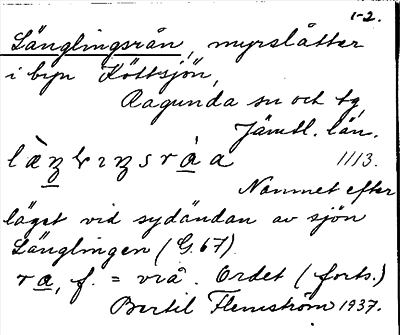 1-2.
Långlingsrån, myrslåtter
i byn Köttsjön,
Ragunda sn och tg,
Jämtl. län.
1113.
Namnet efter
läget vid sydändan av sjön
Långlingen (G. 67).
f. = vrå. Ordet (forts.)
Bertil Flemström 1937.